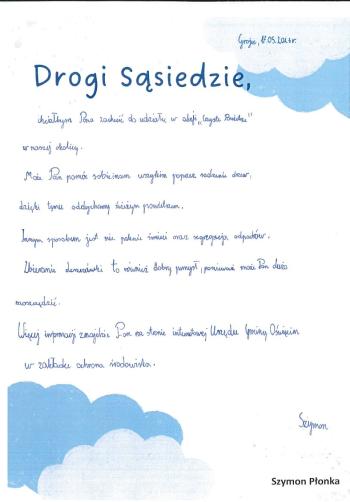 Grojec, 17.05.2021r.
Drogi Sąsiedzie,
chciałbym Pana zachęcić do udziału w akcji „Czyste Powietrze"
w naszej okolicy.
Może Pan pomóc sobie i nam wszystkim poprzez sadzenie drzew,
dzięki temu oddychamy świeżym powietrzem.
Innym sposobem jest nie palenie śmieci oraz segregacja odpadów.
Zbieranie deszczówki to również dobry pomysł, ponieważ może Pan dużo
zaoszczędzić.
Więcej informacji znajdzie Pan na stronie internetowej Urzędu Gminy Oświęcim
w zakładce ochrona środowiska.
Szymon
Szymon Płonka